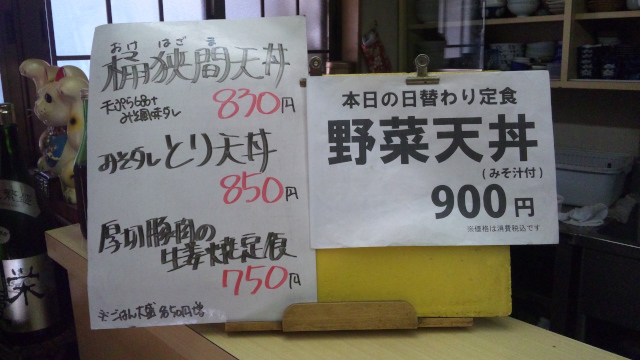 おけはざま
桶狭間天丼
みそ風味ダレ
830円
みそダレとり天丼
850円
厚切豚肉の
生姜焼定食
750円
※ごはん大盛 各50円増
本日の日替わり定食
野菜天丼
(みそ汁付)
900円
※価格は消費税込です